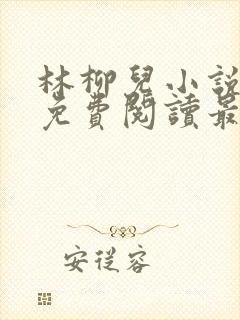 林柳兒小說
免費閱讀最
安從容